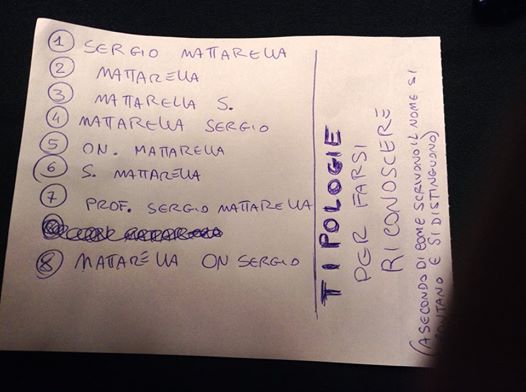 1 SERGIO MATTARELLA
2 MATTARELLA
3 MATTARELLA S.
4 MATTARELLA SERGIO
5 ON. MATTARELLA
6 S. MATTARELLA
7 PROF. SERGIO MATTARELLA
8 MATTARELLA ON SERGIO
TIPOLOGIE
PER FARSI
RICONOSCERE
(A SECONDO DI COME SCRIVONO IL NOME SI
E SI DISTINGUONO)